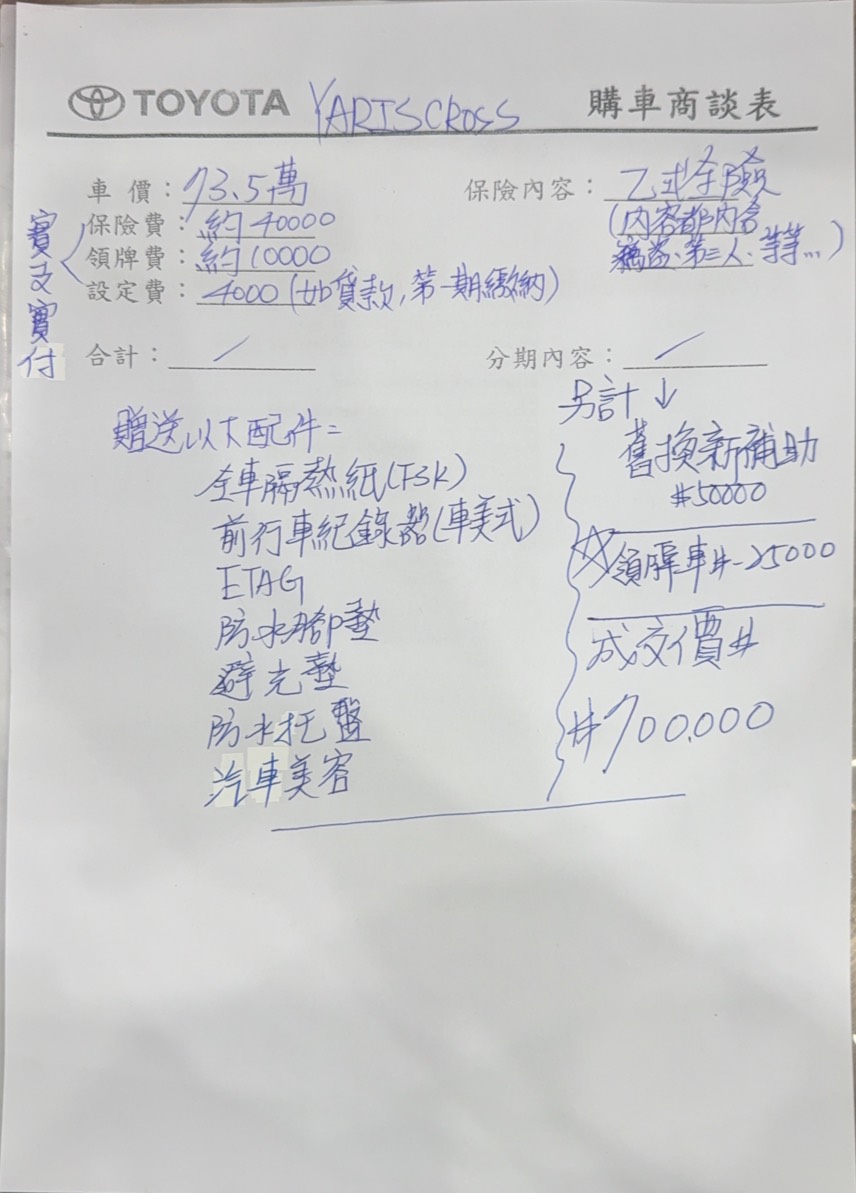 TOYOTA YARIS CROSS 購車商談表
車價：73.5萬
保險內容：乙式全險
(內容都內含
竊盜、第三人、等等...)
實支實付
保險費：約40000
領牌費：約10000
設定費：4000(如貸款,第一期繳納)
合計：/
分期內容：/
贈送以下配件=
全車隔熱紙(FSK)
前行車紀錄器(車美式)
ETAG
防水腳墊
避光墊
防水托盤
汽車美容
另計↓
舊換新補助
#50000
☆領牌車#-25000
成交價#
#700.000